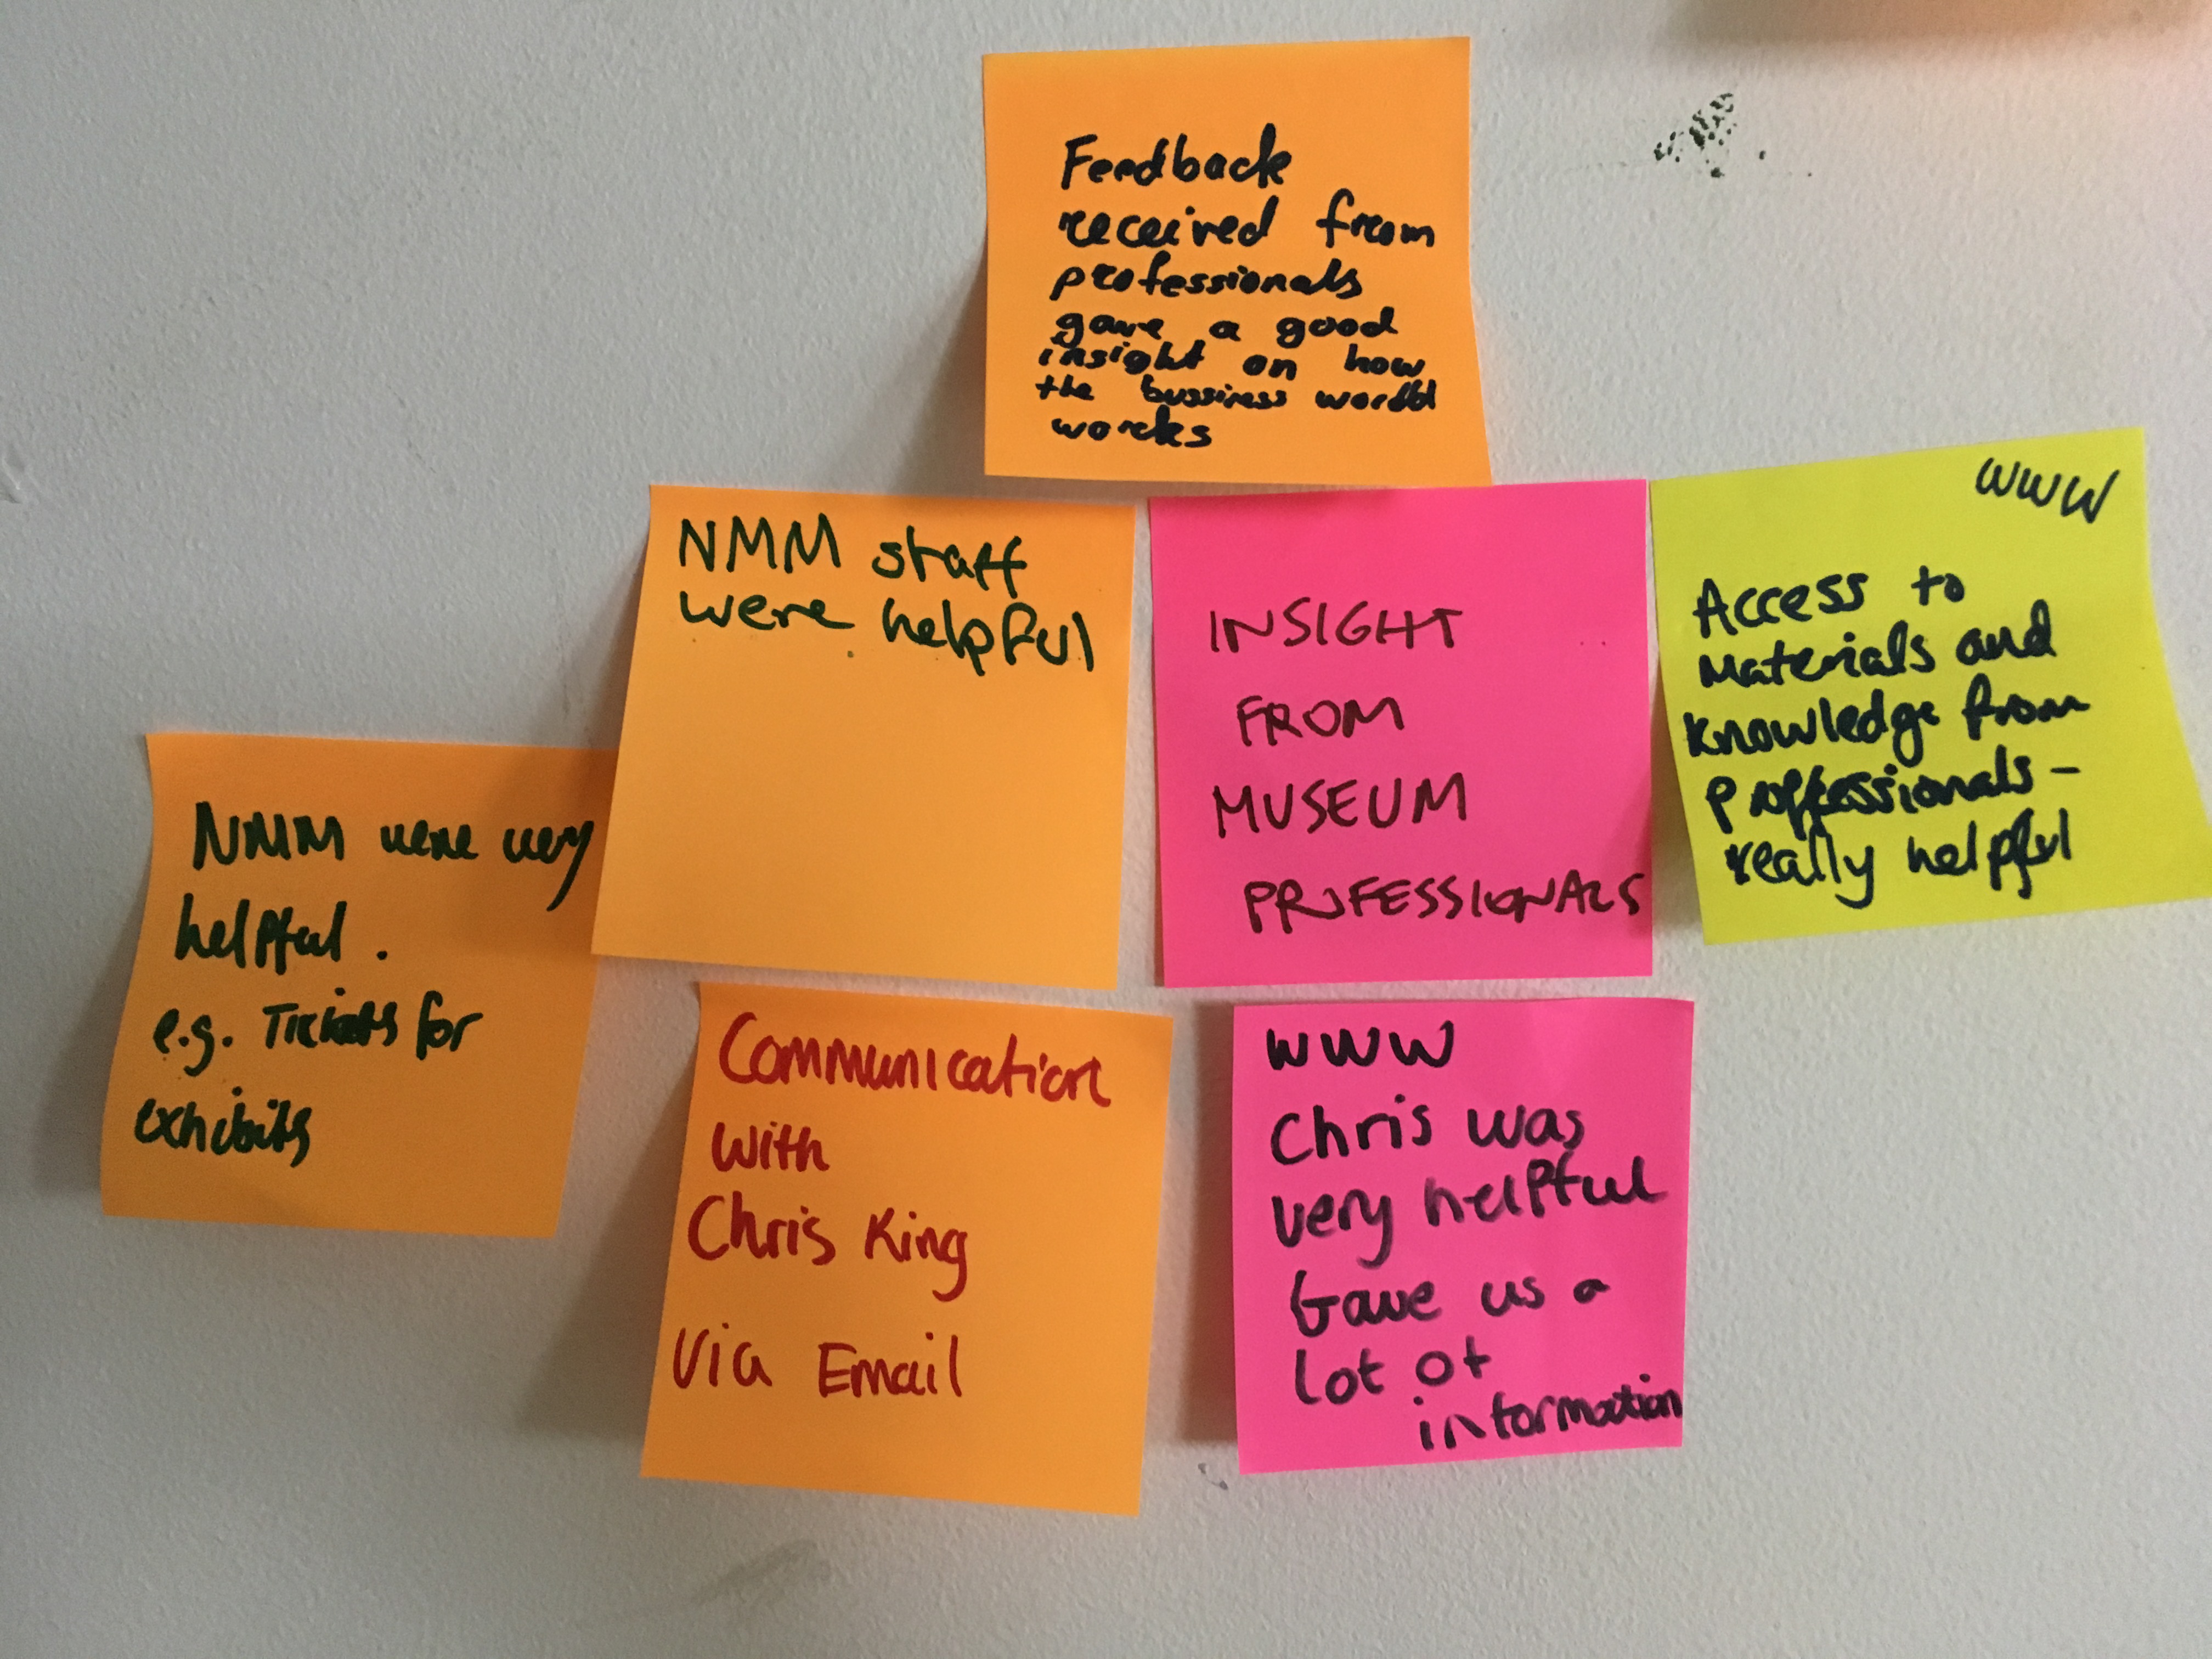 Feedback
received from
professionals
gave a good
insight on how
the bussiness world
works
NMM staff
were helpful
INSIGHT
FROM
MUSEUM
PROFESSIONALS
WWW
Access to
Materials and
Knowledge from
proffessionals -
really helpful
NMM were very
helpful.
e.g. Tickets for
exhibits
Communication
with
Chris King
Via Email
WWW
Chris was
very helpful
Gave us a
lot of
information